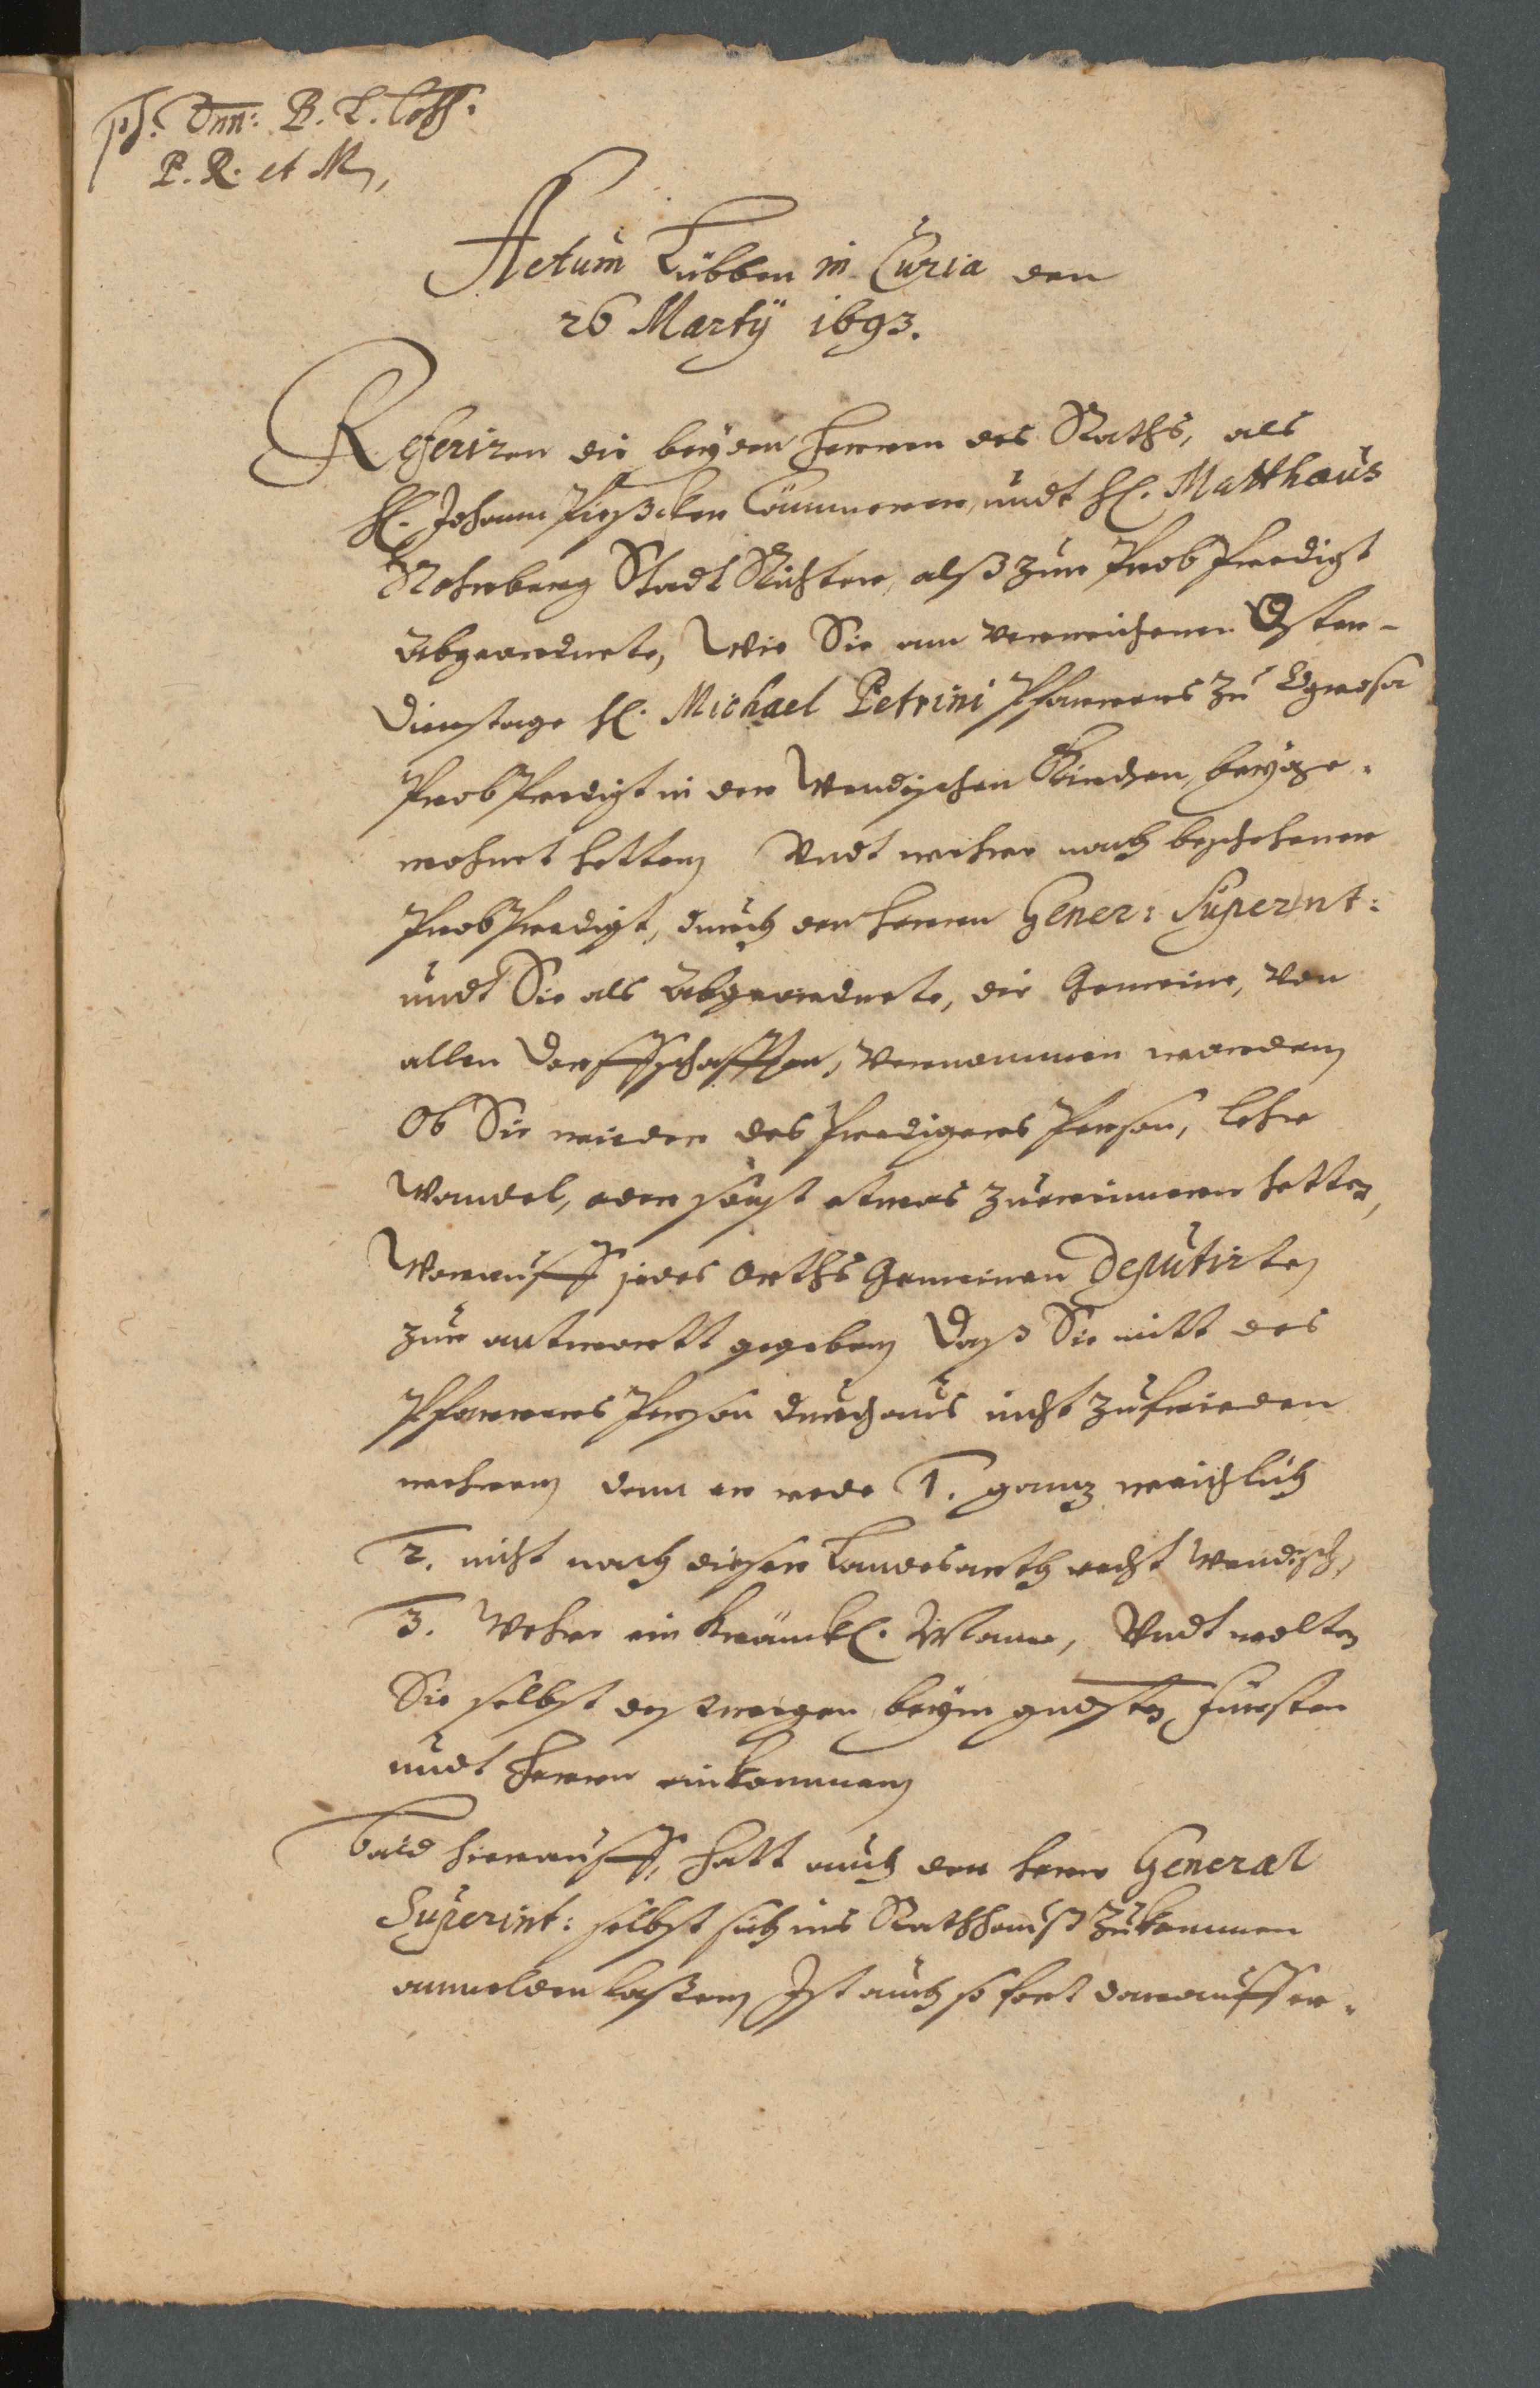 ps. Dnn: B. L. Coss.
P. R. et M,
Actum Lübben in Curia den
26 Martÿ 1693.
Referiren die beÿden Herren des Raths, als
H. Johann Cämmerer, undt H. Matthaüs
Rohrberg Stadt Richter, alß zur Prob Predigt
Abgeordnete, Wie Sie am verwichenen Oster-
Dienstage H. Michael Petrini Pfarrers zu Ogrosa
Prob Predigt in der Wendischen Kirchen, beÿge-
wohnet hetten Undt wehre nach beschehener
Prob Predigt, durch den Herren Gener: Superint:
undt Sie als Abgeordnete, die Gemeine, von
allen Dorffschafften, vernommen worden
Ob Sie wieder des Predigers Person, Lehre
Wandel, oder sonst etwas zuerinnern hetten,
Worauff jedes Orths Gemeinen Deputirten
zur antwortt gegeben Daß Sie mitt des
Pfarrers Person durchaus nicht zufrieden
wehren denn er rede 1. gantz weichlich
2. nicht nach dieser Landesarth recht Wendisch,
3. Wehre ein kränckl. Mann, Undt wolten
Sie selbst deßwegen beÿm gnädsten Fürsten
undt Herrn einkommen
Bald hierauff, hatt auch der Herr General
Superint: selbst sich ins Rathhauß zukommen
anmelden laßen Ist auch so fort darauff er-